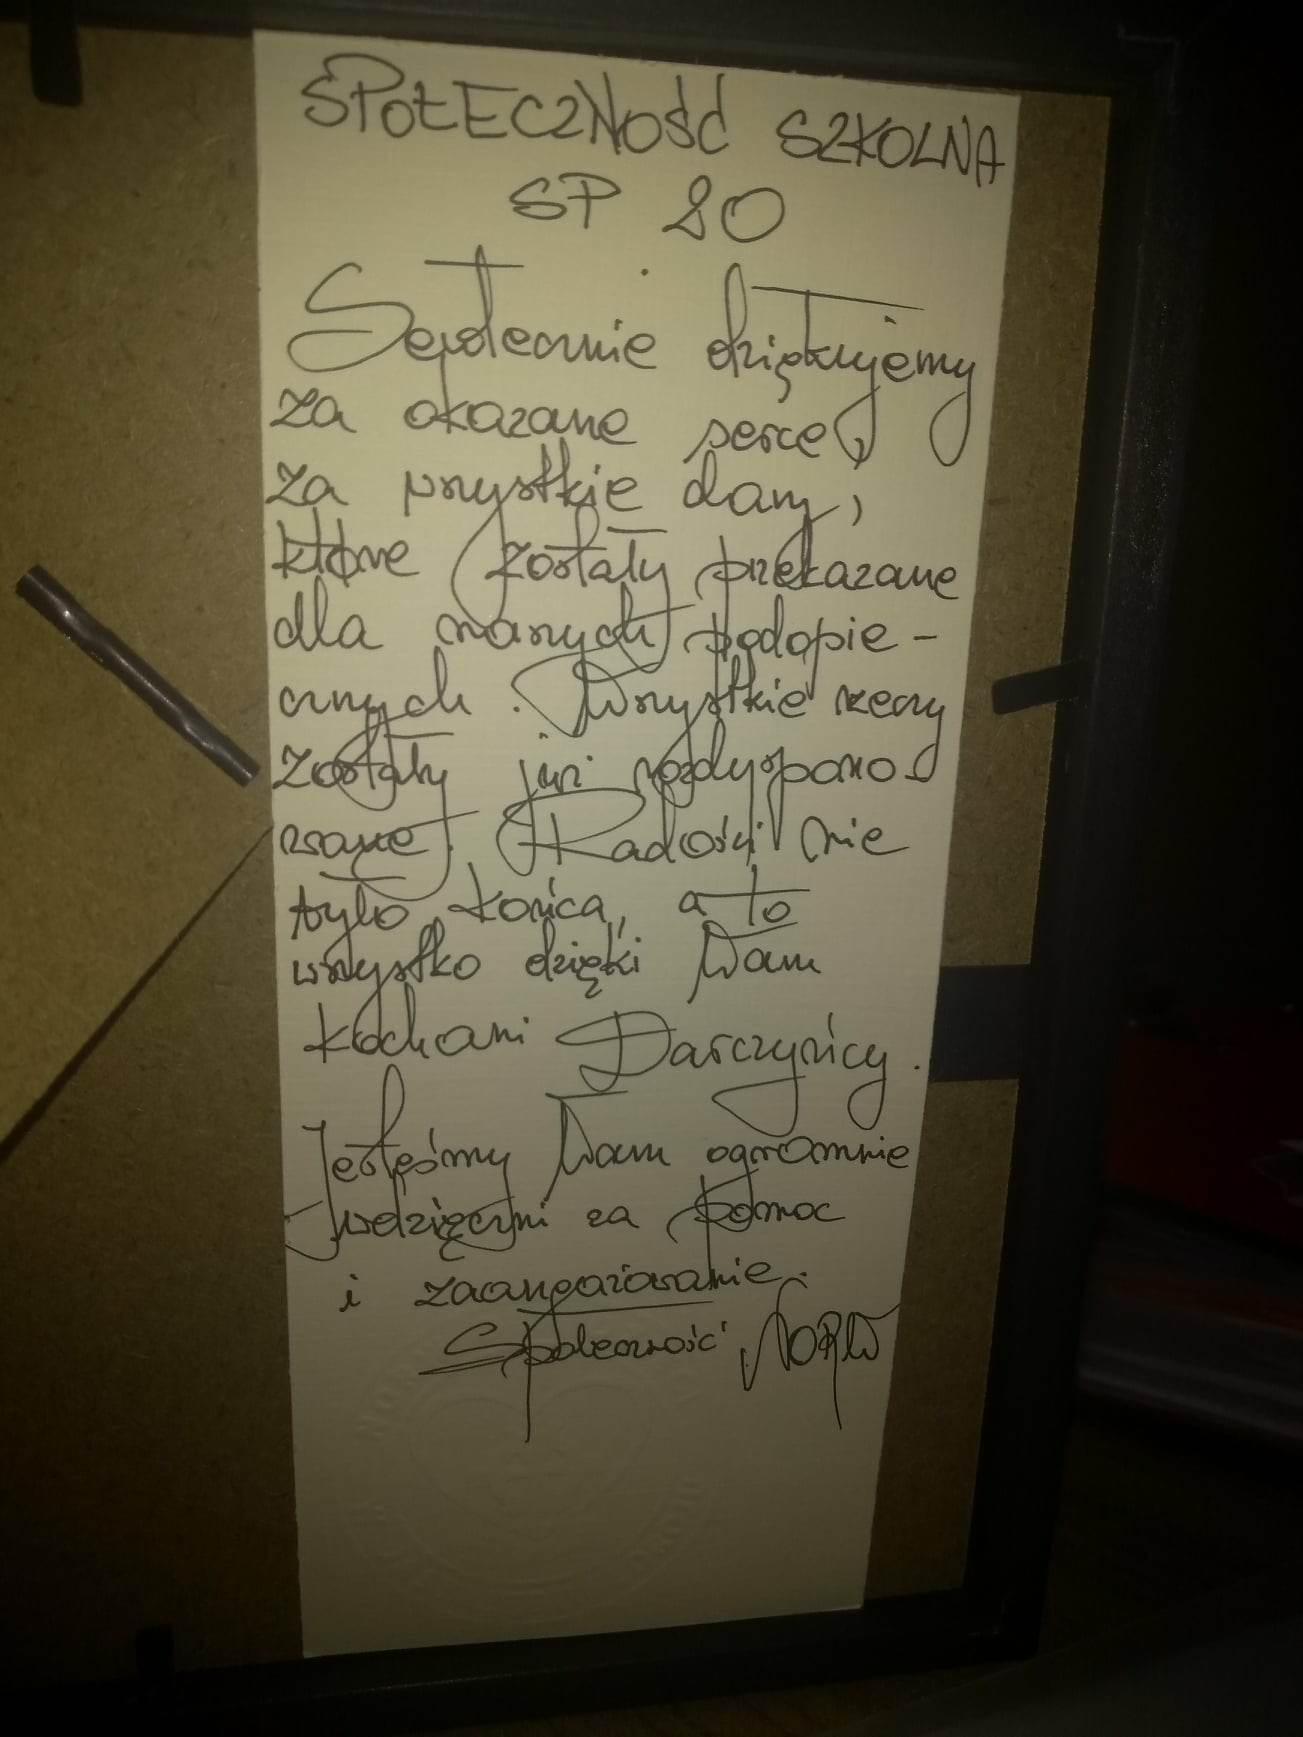 SPOŁECZNOŚĆ SZKOLNA
SP 20
Serdecznie dziękujemy
za okazane serce,
za wszystkie dary,
które zostały przekazane
dla naszych podopie-
cznych. Wszystkie rzeczy
zostały już rozdyspono-
wane. Radości nie
było końca, a to
wszystko dzięki Wam
Kochani Darczyńcy.
Jesteśmy Wam ogromnie
wdzięczni za pomoc
i zaangażowanie.
Społeczność ŚOPW